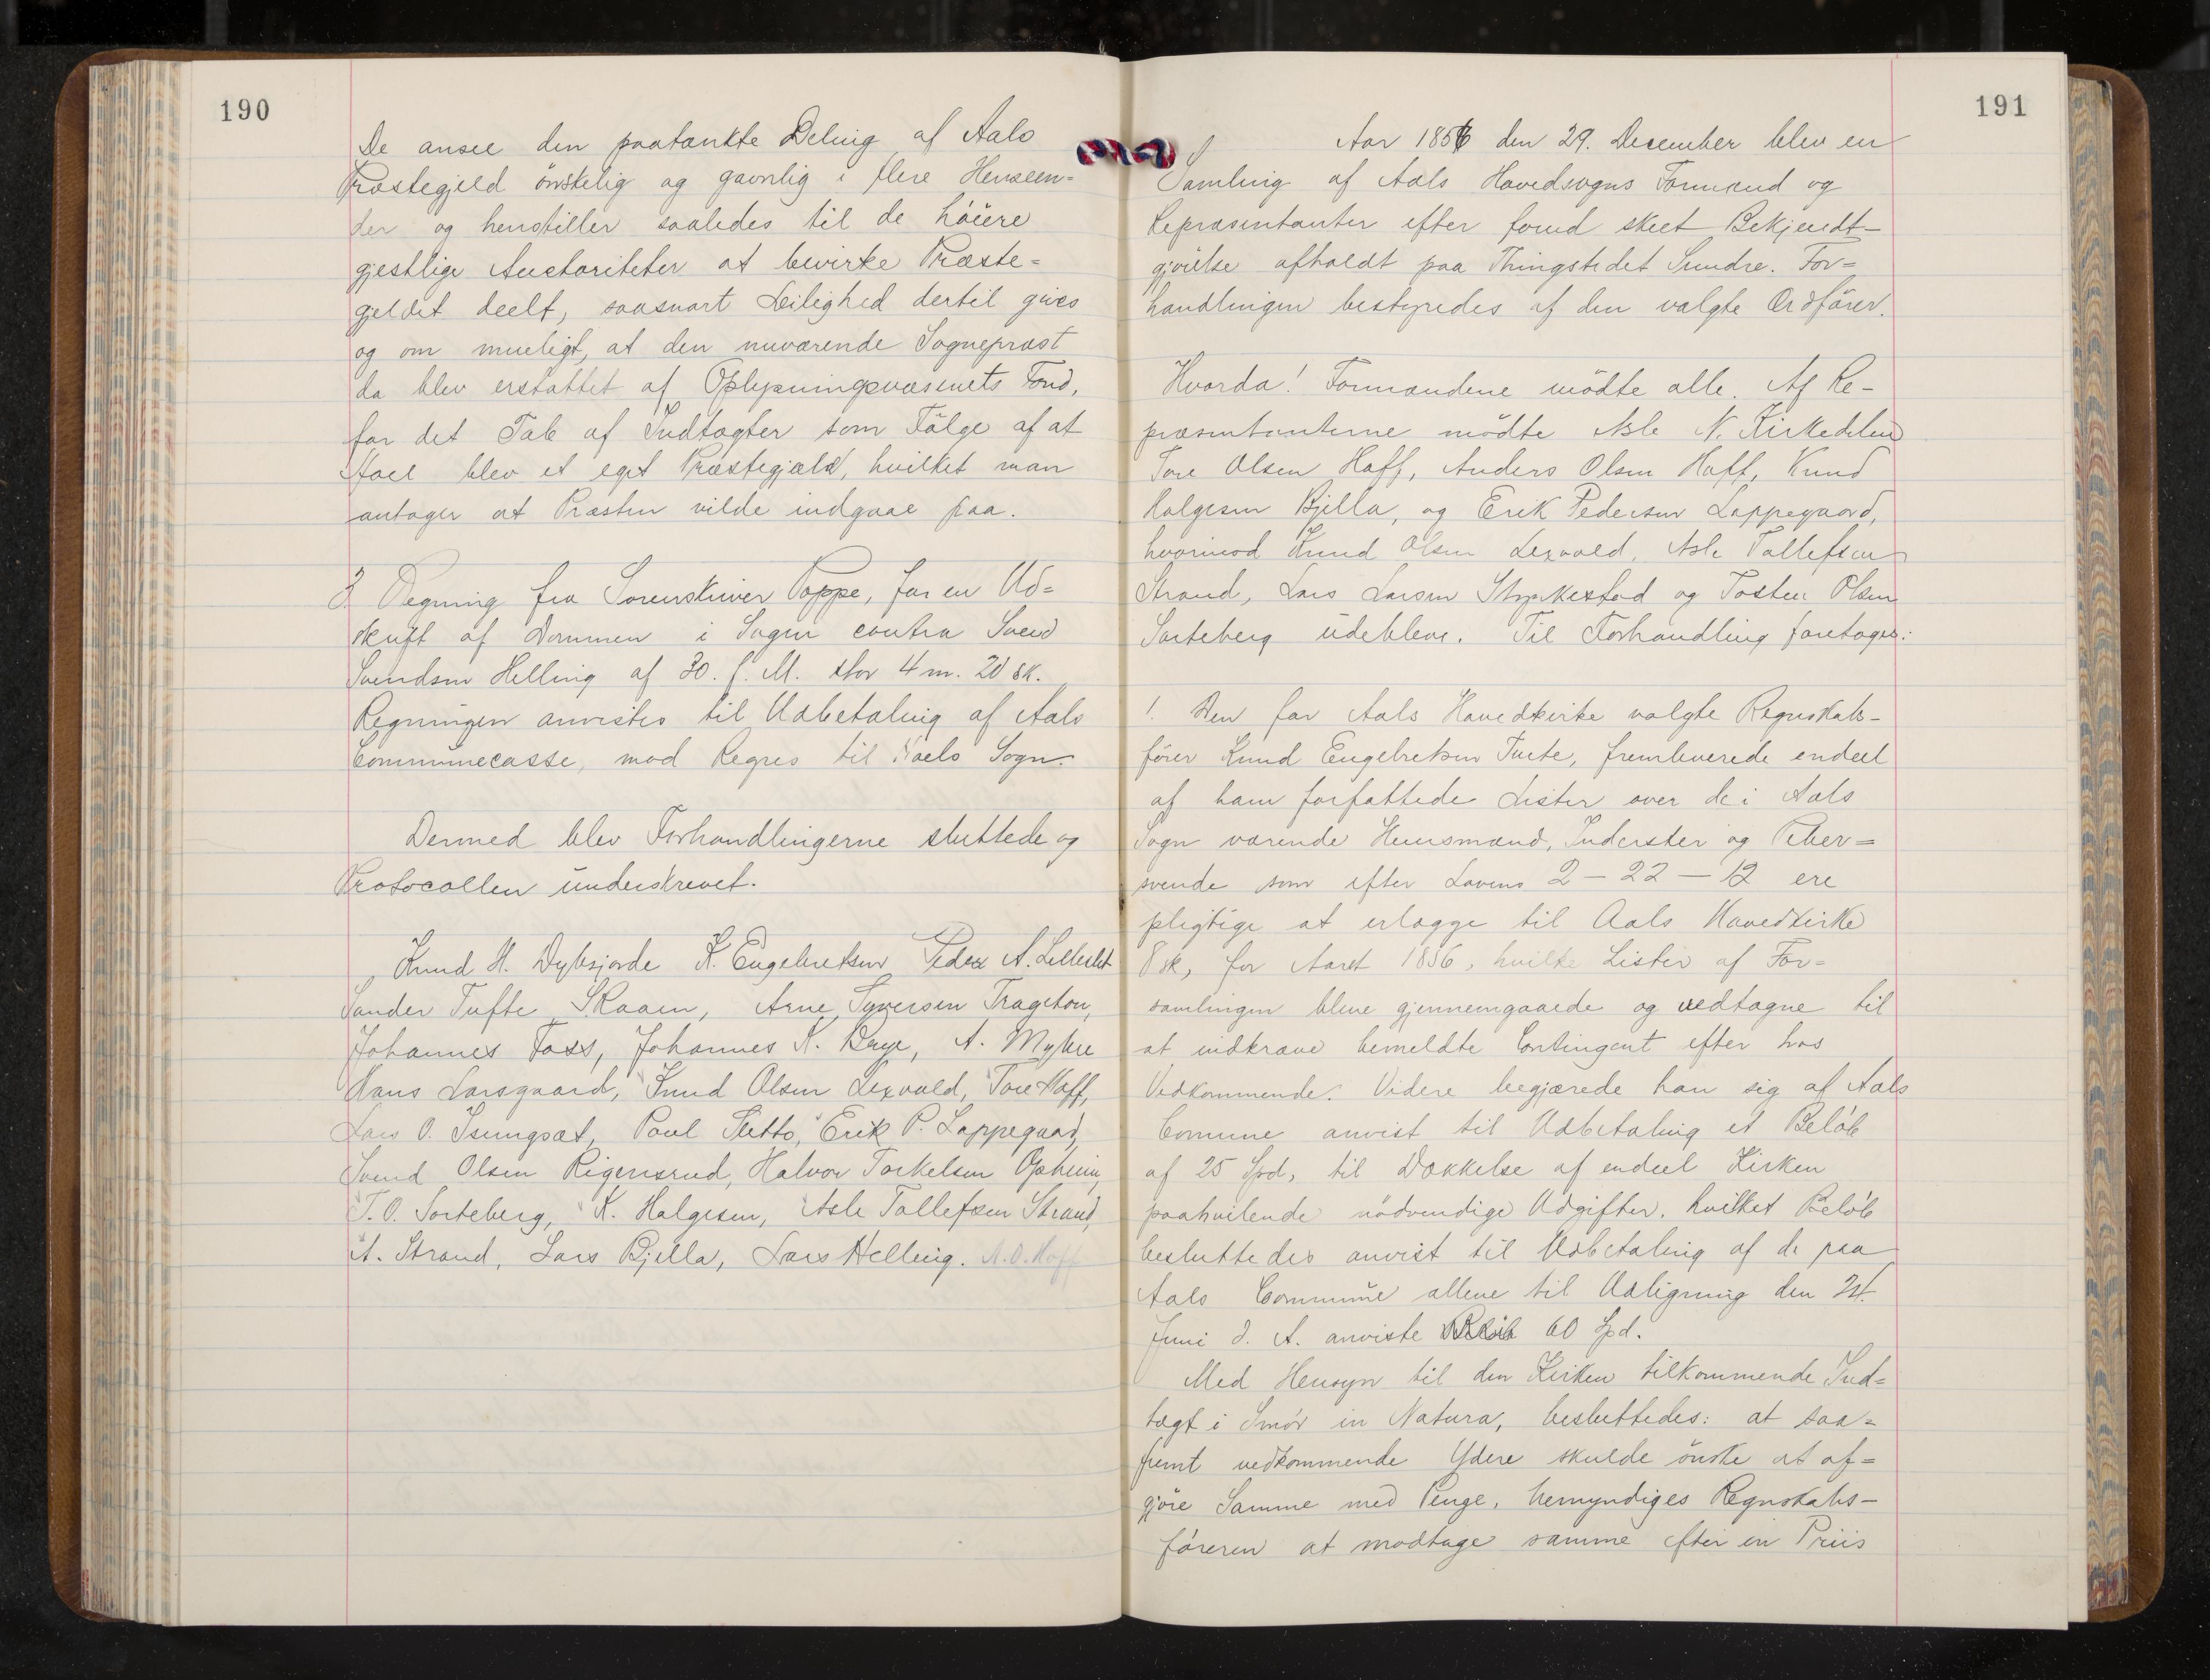 190
De ansee den paatænkte Deling af Aals
Præstegjeld önskelig og gavnlig i flere Henseen=
der og henstiller saaledes til de höiere
gjestlige Auctoriteter at bevirke Præste=
gjeldet deelt, saasnart Leilighed dertil gives
og om mueligt, at den nuværende Sognepræst
da blev erstattet af Oplysningsvæsenets Fond,
for det Tab af Indtægter som Fölge af at
Hoel blev et eget Præstegjæld, hvilket man
antager at Præsten vilde indgaae paa.
3. Regning fra Sorenskriver Poppe, for en Ud=
skrift af Dommen i Sagen contra Svend
Svendsen Helling af 30. f. M. stor 4 m. 20 sk.
Regningen anvistes til Udbetaling af Aals
Communecasse, mod Regres til Hoels Sogn.
Dermed blev Forhandlingerne sluttede og
Protocollen underskrevet.
Knud H. Dybsjorde K. Engebretsen Peder A. Lilleslet
Sander Tufte, S Raaen, Arne Syversen Trageton,
Johannes Foss, Johannes K. Brye, A. Myhre
Hans Larsgaard, Knud Olsen Lexvold, Tore Hoff,
Lars O. Isungset, Poul Sletto, Erik P. Loppegaard,
Svend Olsen Rigensrud, Halvor Torkelsen Opheim,
T. O. Sorteberg, K. Halgesen, Asle Tollefsen Strand,
A. Strand, Lars Bjella, Lars Helling. A. O. Hoff
191
Aar 1856 den 29. December blev en
Samling af Aals Hovedsogns Formænd og
Repræsentanter efter forud skeet Bekjendt-
gjörelse afholdt paa Thingstedet Sundre. For=
handlingen bestyredes af den valgte Ordförer.
Hvorda! Formændene mödte alle. Af Re-
præsentanterne mödte Asle N. Kirkedelen
Tore Olsen Hoff, Anders Olsen Hoff, Knud
Halgesen Bjella, og Erik Pedersen Loppegaard,
hvorimod Knud Olsen Lexvold, Asle Tollefsen
Strand, Lars Larsen Strykestad og Tosten Olsen
Sorteberg udebleve. Til Forhandling foretoges:
1. Den for Aals Hovedkirke valgte Regnskabs-
förer Knud Engebretsen Tufte, fremleverede endeel
af ham forfattede Lister over de i Aals
Sogn værende Huusmænd, Inderster og Peber=
svende som efter Lovens 2 - 22 - 12 ere
pligtige at erlægge til Aals Hovedkirke
8 sk, for Aaret 1856, hvilke Lister af For=
samlingen bleve gjennemgaaede og vedtagne til
at indkræve bemeldte Contingent efter hos
Vedkommende. Videre begjærede han sig af Aals
Comune anvist til Udbetaling et Belöb
af 25 Spd, til Dækkelse af endeel Kirken
paahvilende nödvendige Udgifter, hvilket Belöb
besluttedes anvist til Udbetaling af de paa
Aals Commune allene til Udligning den 2d.
Juni d. A. anviste Belöb 60 Spd.
Med Hensyn til den Kirken tilkommende Ind=
tægt i Smör in Natura, besluttedes: at saa=
fremt vedkommende Ydere skulde önske at af=
gjöre Samme med Penge, bemyndiges Regnskabs-
föreren at modtage samme efter en Priis